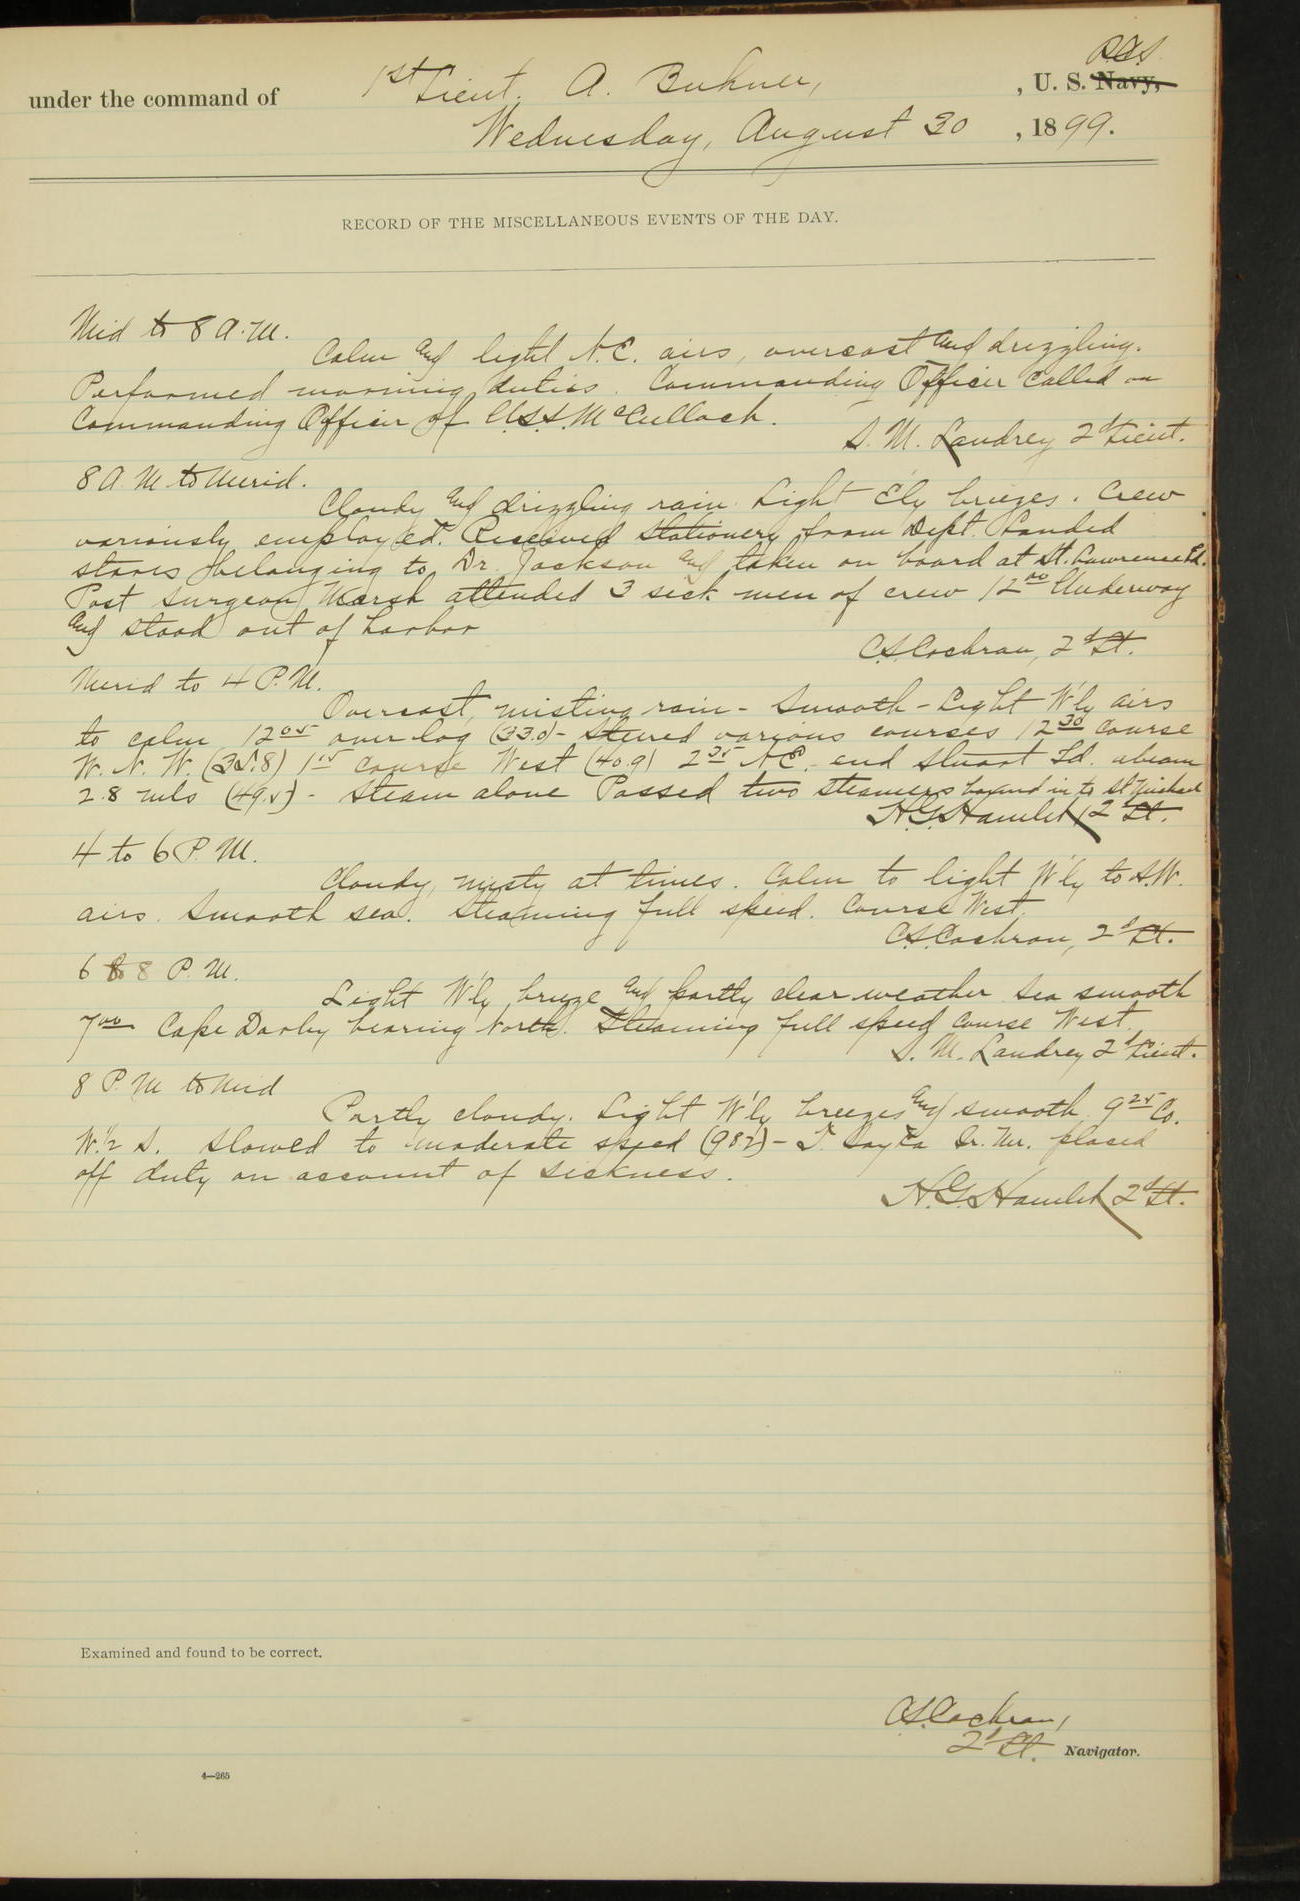 R.C.S.
under the command of 1st Lieut. A. Buhner, , U. S. Navy,
Wednesday, August 30 , 1899.
RECORD OF THE MISCELLANEOUS EVENTS OF THE DAY.
Mid to 8 A.M.
Calm and light N.E. airs, overcast and drizzling.
Performed morning duties. Commanding Officer called on
Commanding Officer of U.S.S. McCulloch.
S. M. Landrey 2d Lieut.
8 A M to Merid.
Cloudy and drizzling rain. Light E'ly breezes. Crew
variously employed. Received stationery from Dept. Landed
stores belonging to Dr. Jackson and taken on board at St. Lawrence Id.
Post Surgeon Marsh attended 3 sick men of crew 12 00 Underway
and stood out of harbor
C.S. Cochran, 2d Lt.
Merid to 4 P.M.
Overcast, misting rain - Smooth - Light W'ly airs
to calm 12 05 over log (33.0) - Steered various courses 12 30 course
W. N. W. (35.8) 1 15 course West (40.9) 2 35 N.E. end Stuart Id. abeam
2.8 mls (49.5) - Steam alone Passed two steamers bound in to St Michael
H.G. Hamlet, 2d Lt.
4 to 6 P. M.
Cloudy, misty at times. Calm to light W'ly to S.W.
airs. Smooth sea. Steaming full speed. Course West.
C.S. Cochran, 2d Lt.
6 to 8 P. M.
Light W'ly breeze and partly clear weather Sea smooth
7 00 Cape Darby bearing North. Steaming full speed course West.
S. M. Landrey 2d Lieut.
8 P. M to Mid
Partly cloudy. Light W'ly breezes and smooth. 9 25 Co.
W. ½ S. Slowed to moderate speed (98 2) - placed
off duty on account of sickness.
H.G. Hamlet 2d Lt.
Examined and found to be correct.
C.S. Cochran,
2d Lt. Navigator.
4—265